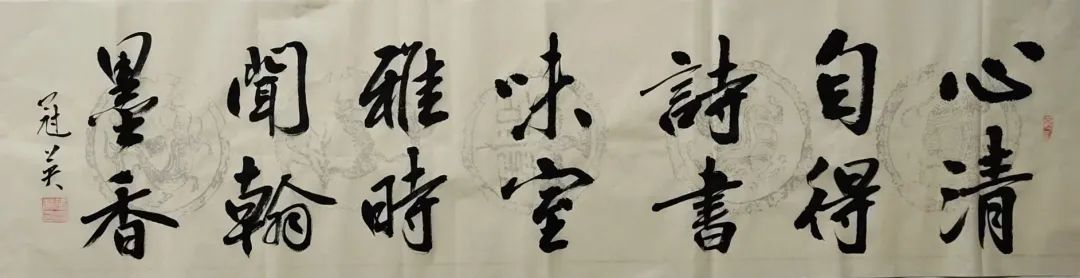 心清
自得
詩書
味室
雅時
聞翰
墨香
冠英